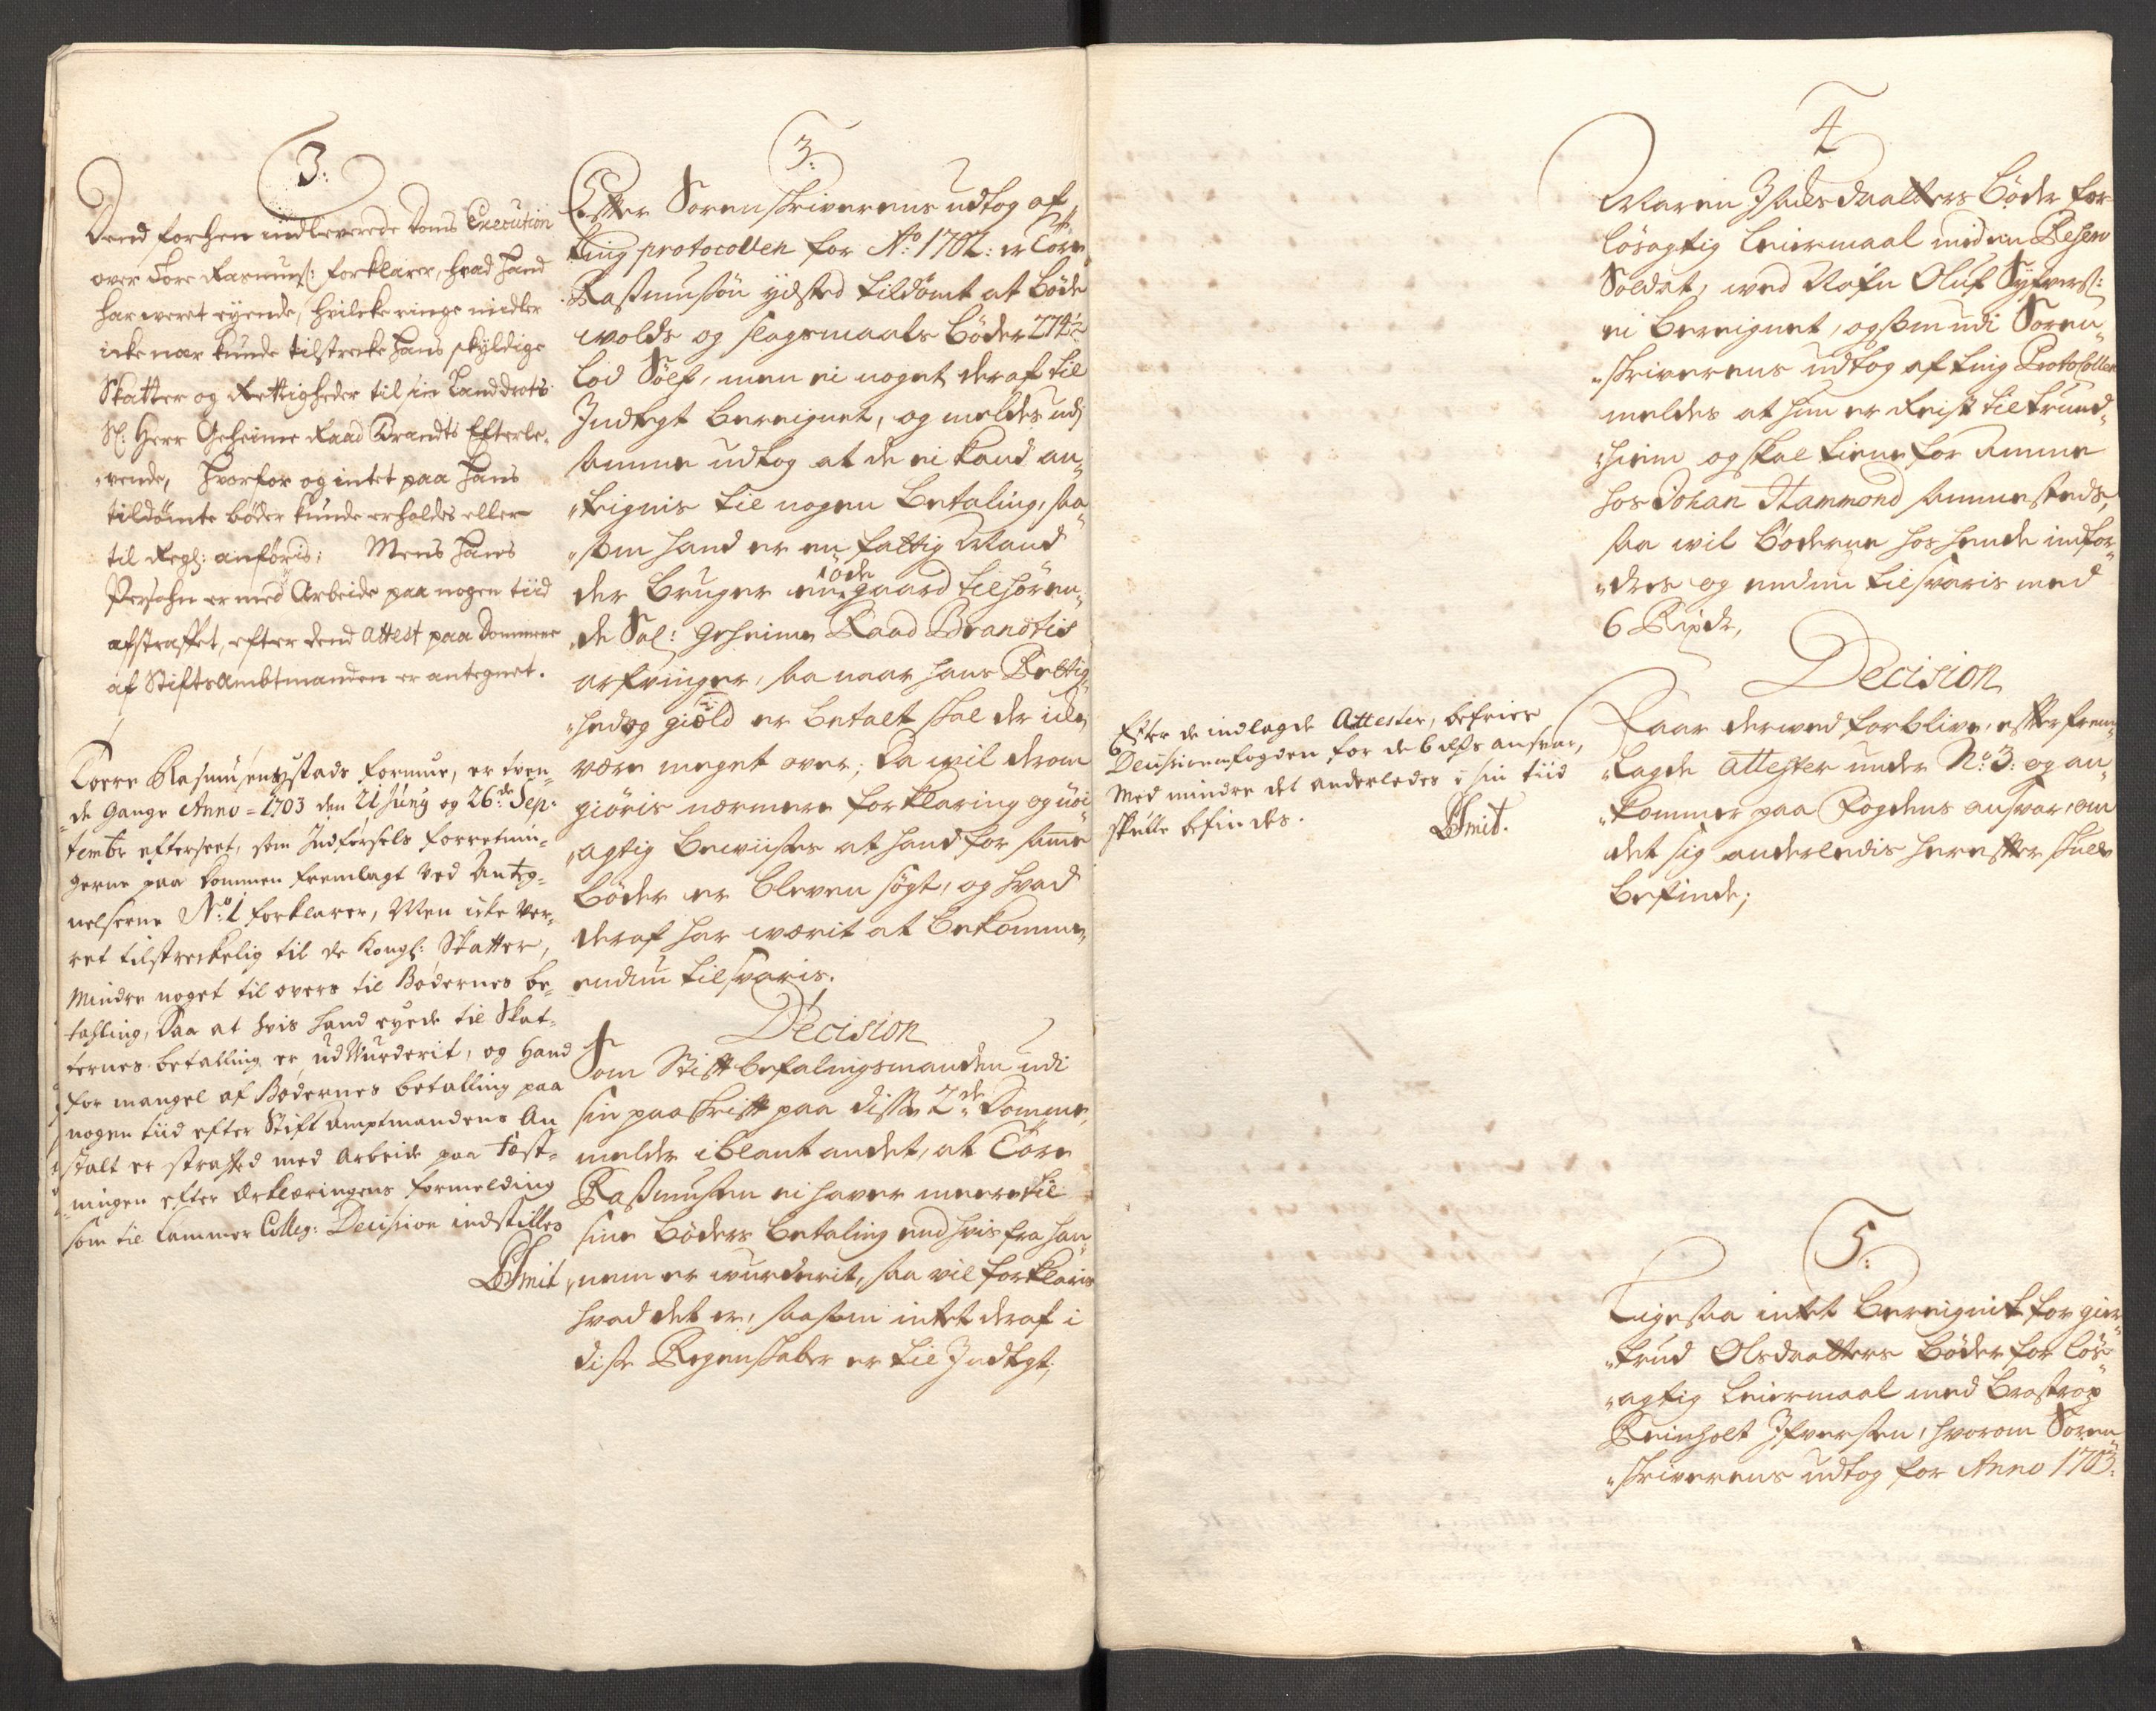 3.
Dend forhen indleverede Doms Execution
over Tore Rasmuss: forklarer, hvad hand
har weret eyende, hvilcke ringe midler
icke nær kunde tilstrecke hans skyldige
Skatter og Rettigheder til sin Landdrots
Sl: Herr Geheime Raad Brandts Efterle„
„vende, hvorfor og intet paa hans
tildømte bøder kunde erholdes eller
til Regsk: anføris; Mens hans
Persohn er med Arbeide paa nogen tiid
afstraffet, efter dend attest paa Dommene
af Stiftsambtmanden er antegnet.
Toere Rasmusen ystads formue, er tven„
„de gange Anno = 1703 den 21 Junij og 26de Sep„
tembr efterseet, som Indførsels forretnin„
gerne paa Dommen fremlagt ved Anteg„
nelserne No: 1 forklarer, Men icke ver„
ret tilstreckelig til de Kongl: Skatter,
Mindre noget til overs til Bødernes be„
tahling, Saa at hvis hand eyede til Skat„
ternes betalling er udWurderit, og hand
for mangel af Bødernes betalling paa
nogen tiid efter StiftAmptmandens An„
stalt er straffed med Arbeide paa Fæst„
„ningen efter Erklæringens formelding
som til Cammer Colleg: Decision indstilles
Smit
3:
Effter Sorenskriverens udtog af
ting protocollen for Ao: 1702: er Tore
Rassmussøn ydsted tildømt at bøde
wolds og slagsmaals bøder 274½
lod Sølf, men ei noget deraf til
Indtegt bereignet, og meldes udj
samme udtog at de ei kand an„
„teignis til nogen betaling, saa„
„som hand er en fattig Mand
der bruger en øde gaard tilhøren„
„de Sal: geheime Raad Brandtis
arfvinger, saa naar hans Rettig„
„hed og giæld er betalt skal der icke
være meget over; Da wil derom
giøris nærmere forklaring og nøi„
„agtig beviises at hand for samme
bøder er bleven søgt, og hvad
deraf har wærit at bekomme,
endnu tilsvaris.
Decision
Som Stiftbefalingsmanden udi
sin paaskrifft paa disse 2de Domme,
melder iblant andet, at Tore
Rassmussen ei haver meere til
sine bøders betaling end hvis fra han„
„nem er wurderit, saa vil forklaris
hvad det er, saasom intet deraf i
disse Regenskaber er til Indtegt;
Efter de indlagde Attester, befries
Decisionen fogden for de 6 rdrs ansvar,
Med mindre det anderledes i sin tiid
skulle befindes.
Smit.
4
Maren Isachsdaatters bøder for
løsagtig leiermaal med en Reserv
Soldat, wed Nafn Oluf Syfvers:
ei bereignet, og som udi Soren„
„skriverens udtog af ting Protocollen
meldes at hun er Reist til trund„
„hiem og skal tiene for Amme
hos Johan Hammond sammesteds,
saa wil bøderne hos hende indfor„
„dres og endnu tilsvaris med
6 Rixdr,
Decision
Faar derwed forblive, effter frem„
„lagde attester under No: 3: og an„
„kommer paa Fogdens ansvar, om
det sig anderledis hereffter skulle
befinde;
5:
Ligesaa intet bereignit for gier„
„trud Olsdaatters bøder for løs„
„agtig leiermaal med
Reinholt Ifversen, hvorom Soren„
„skriverens udtog for Anno 1703: